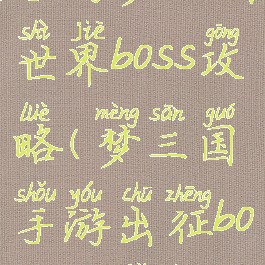 shì jiè gōng
世界boss攻
lüè mèng sān guó
略(梦三国
shǒu yóu chū zhēng
手游出征bo